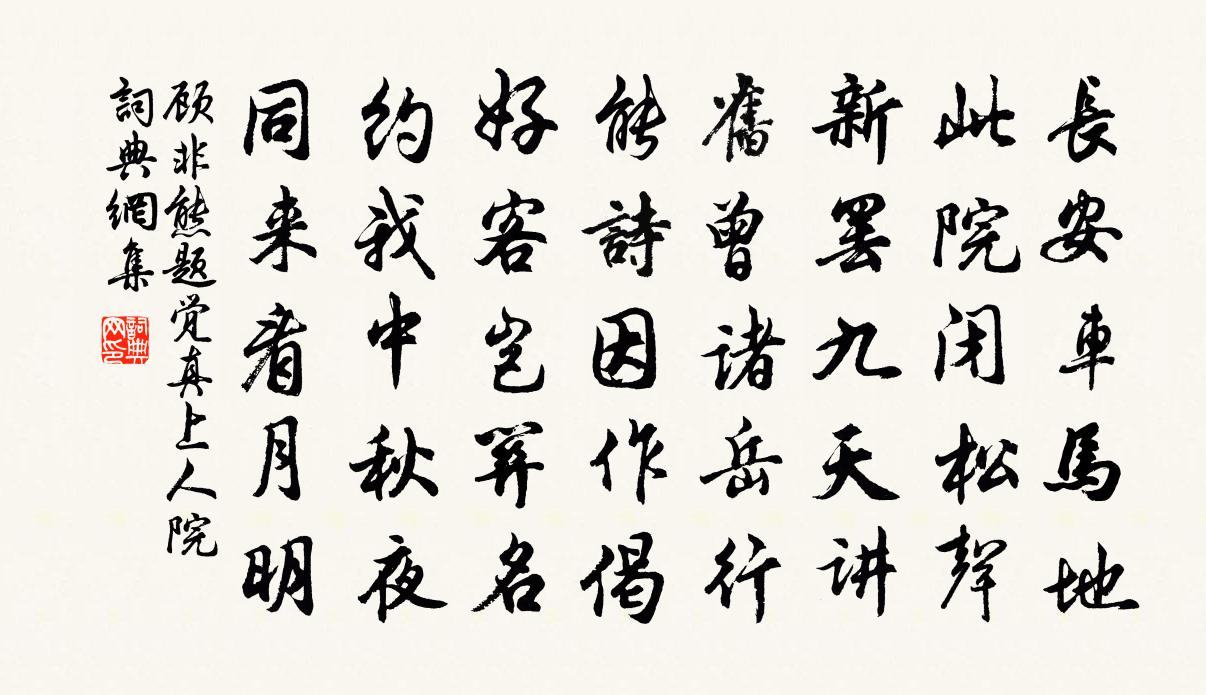 長安車馬地
此院闭松聲
新罷九天讲
舊曾诸岳行
能詩因作偈
好客豈關名
約我中秋夜
同来看月明
顾非熊题覚真上人院
詞典網集
詞典网印